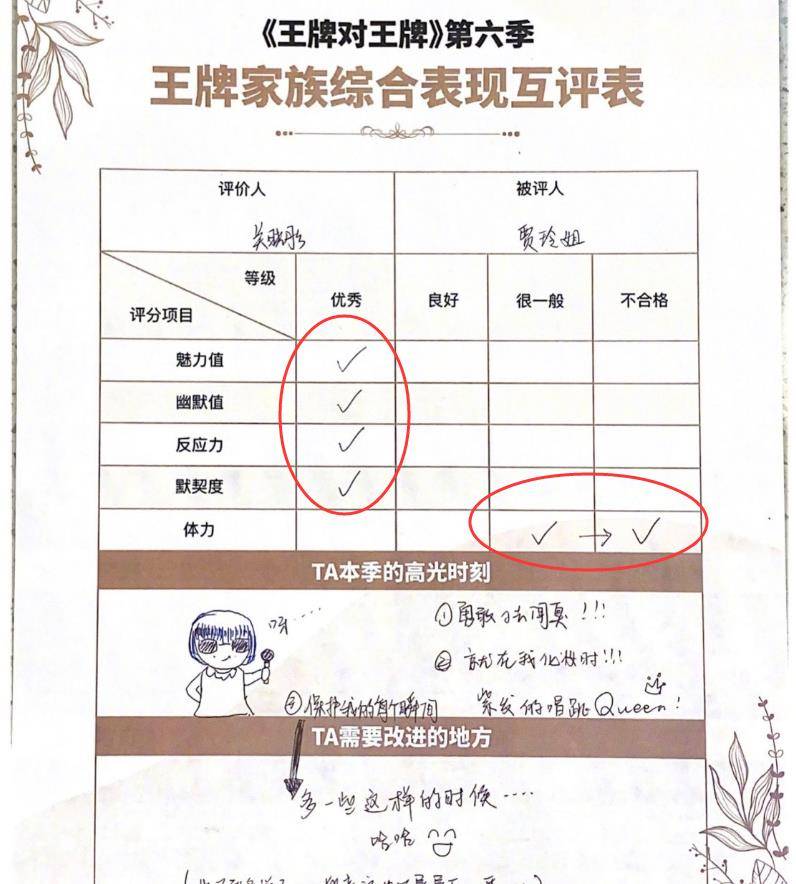 《王牌对王牌》第六季
王牌家族综合表现互评表
评价人 被评人
关晓彤 贾玲姐
等级
评分项目
优秀 良好 很一般 不合格
魅力值 ✓
幽默值 ✓
反应力 ✓
默契度 ✓
体力 ✓ → ✓
TA本季的高光时刻
呀……
①勇敢 !!!
② 就在我化妆时!!!
紫发的唱跳Queen!
③保护我的每个瞬间
TA需要改进的地方
多一些这样的时候····
哈哈